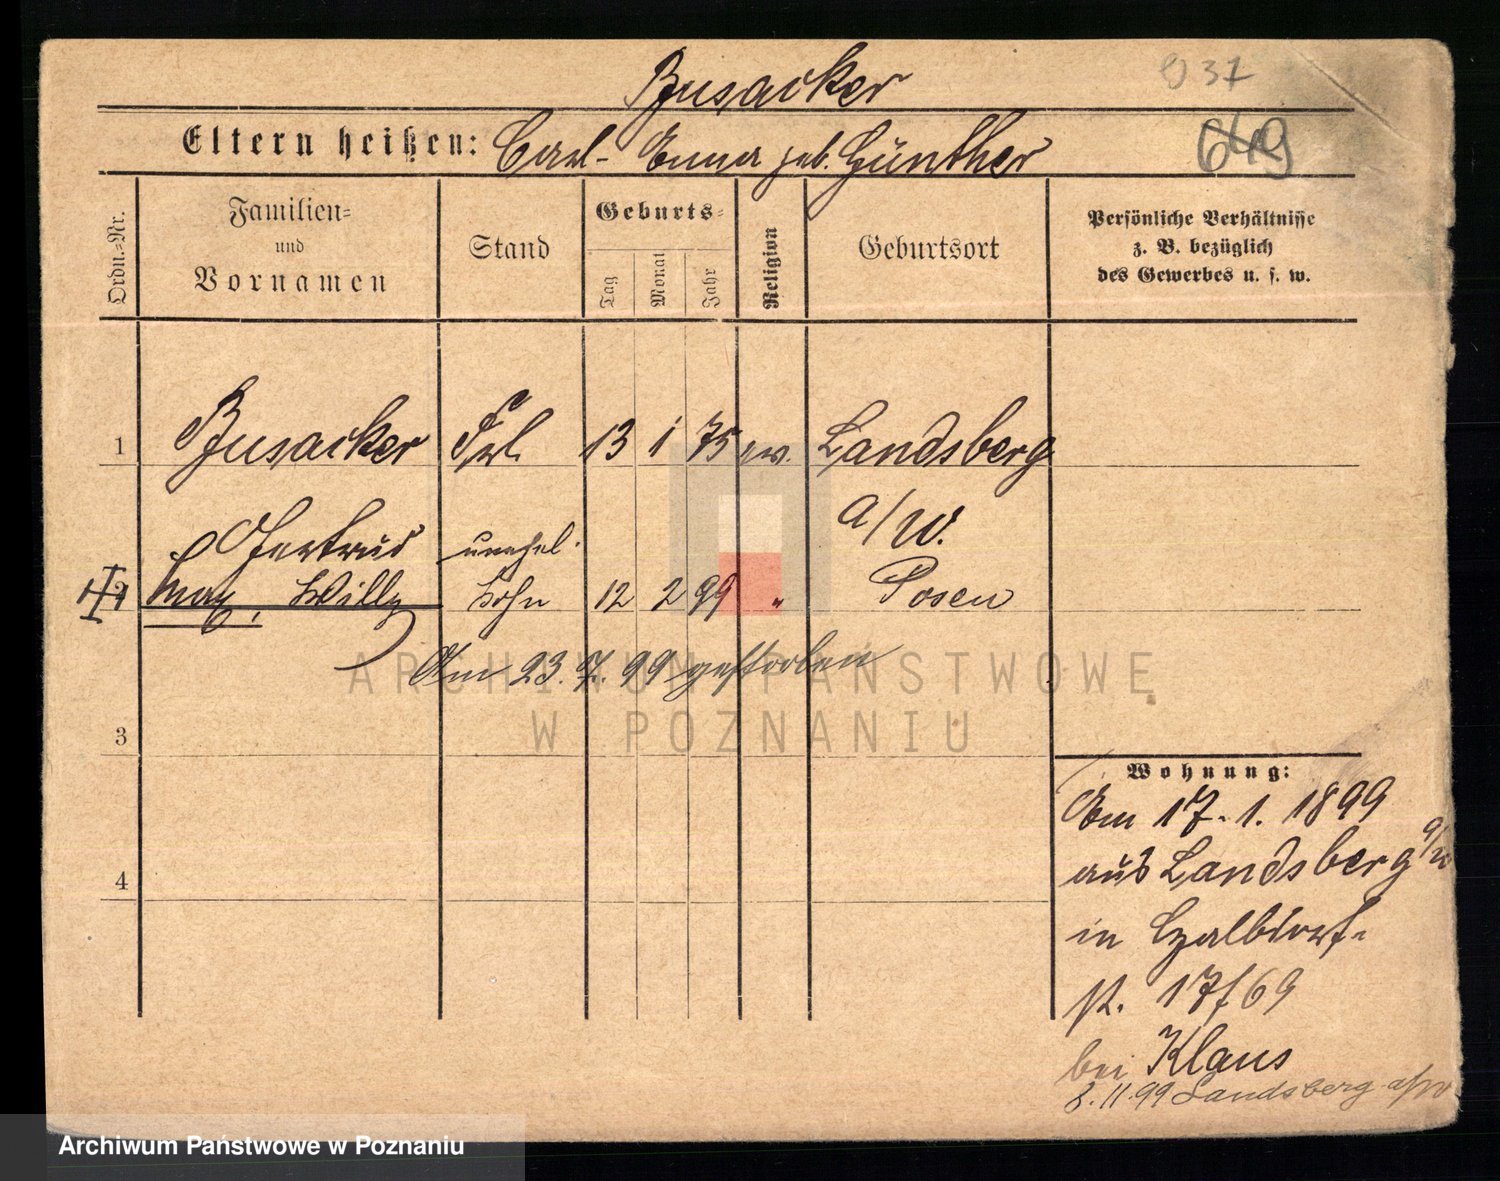 Busacker
O 37
Eltern heißen: Carl - Emma geb. Günther
649
Ordn.-Nr.
Familien-
und
Vornamen
Stand
Geburts-
Tag
Monat
Jahr
Religion
Geburtsort
Persönliche Verhältnisse
z. B. bezüglich
des Gewerbes u. s. w.
1 Busacker Frl. 13 1 75 ev. Landsberg
Gertrud a/W.
unehel.
2 Max, Willy Sohn 12 2 99 " Posen
Am 23. 7. 99 gestorben
ARCHIWUM PAŃSTWOWE
W POZNANIU
3
4
Wohnung:
Am 17. 1. 1899
aus Landsberg a/W
in
St. 17/69
bei Klaus
8.11.99 Landsberg a/W
Archiwum Państwowe w Poznaniu